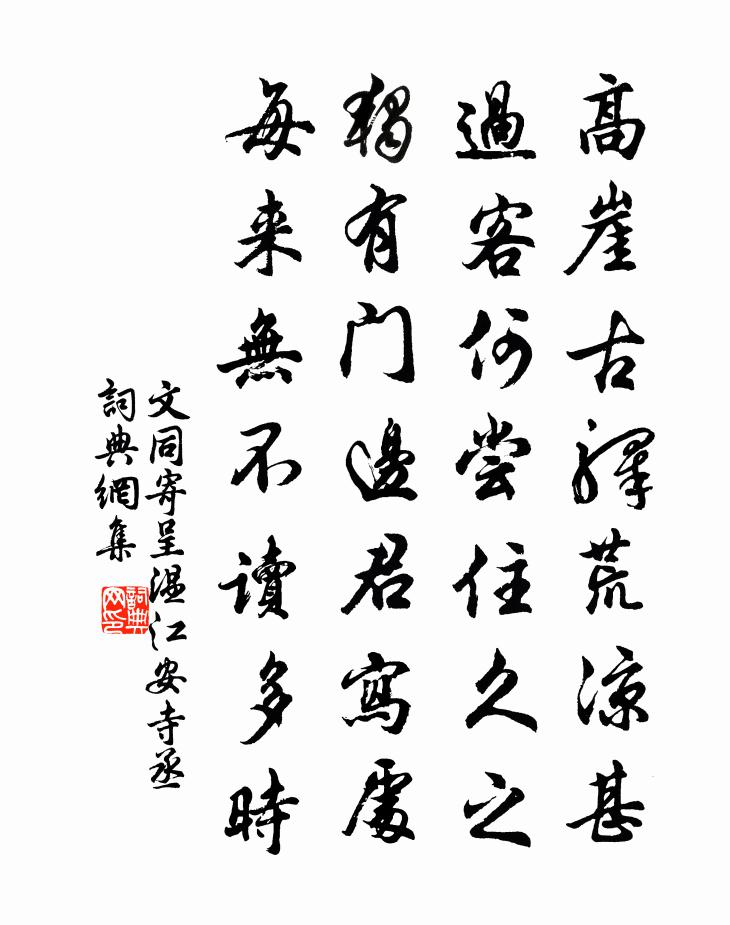 高崖古驛荒涼甚
過客何嘗住久之
獨有門邊君寫處
每来無不讀多時
文同寄呈温江安寺丞
詞典網集
詞典网印